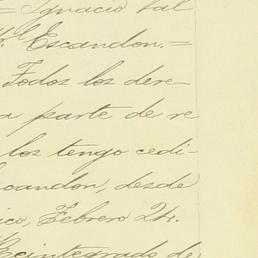 = Ignacio Val
Escandon. =
Todos los dere-
a parte de re
los tengo cedi-
scandon, desde
ico, Febrero 24.
Reintegrado de